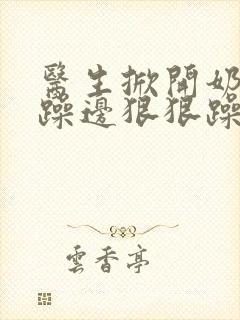 醫生掀開奶
躁邊狠狠躁
雲香亭